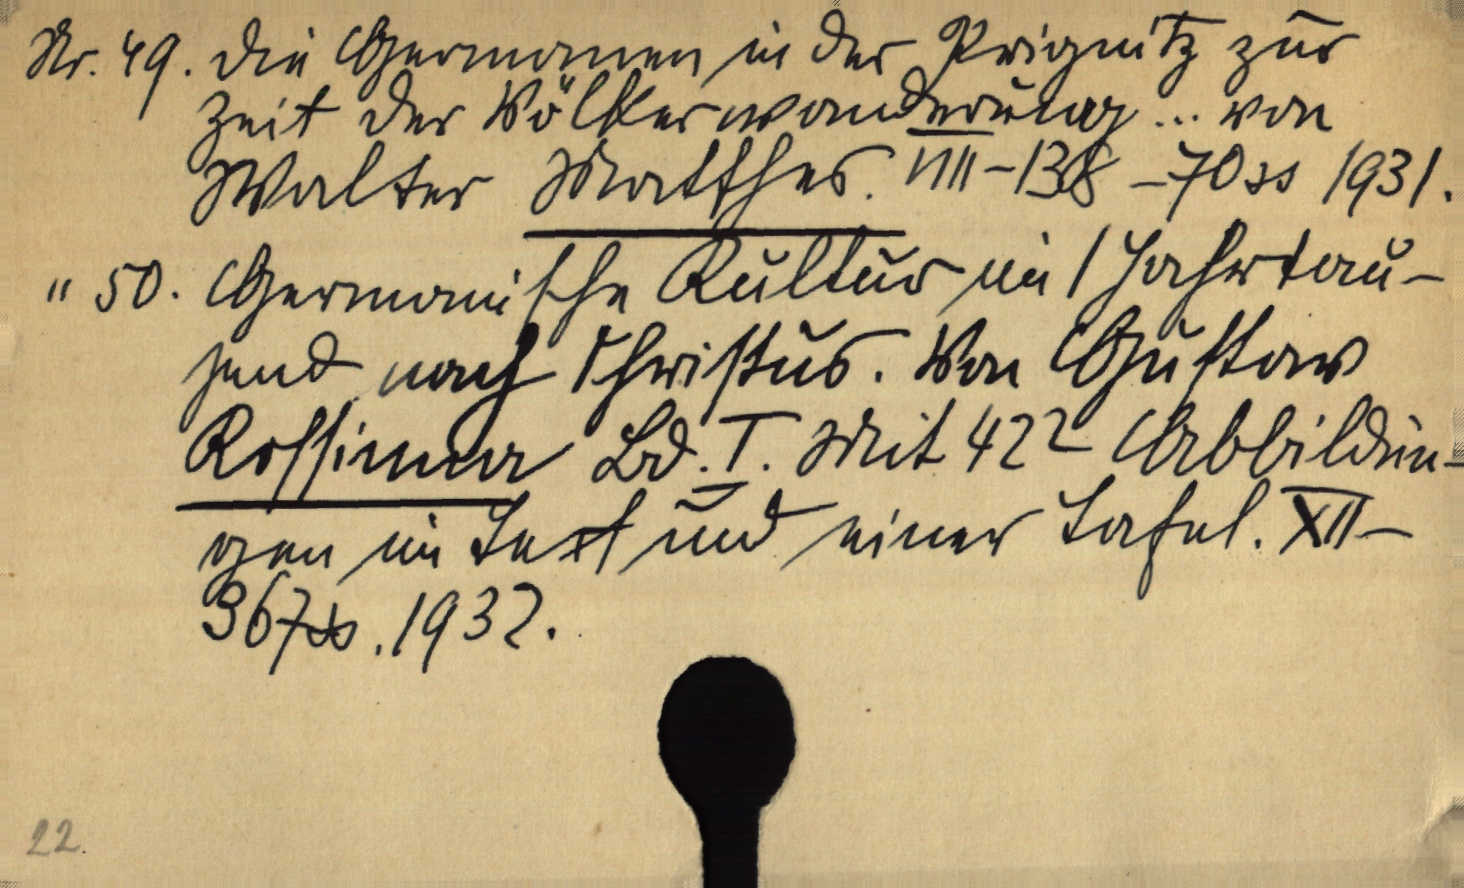 Nr. 49. Die Germanen in der Prignitz zur
Zeit der Völkerwanderung ... von
Walter Matthes. VIII - 138 - 70 ss 1931.
" 50. Germanische Kultur im I Jahrtau-
send nach Christus. Von Gustaw
Kossinna Bd. I. Mit 422 Abbildun-
gen im Text und einer Tafel. XII-
367 ss. 1932.
22.